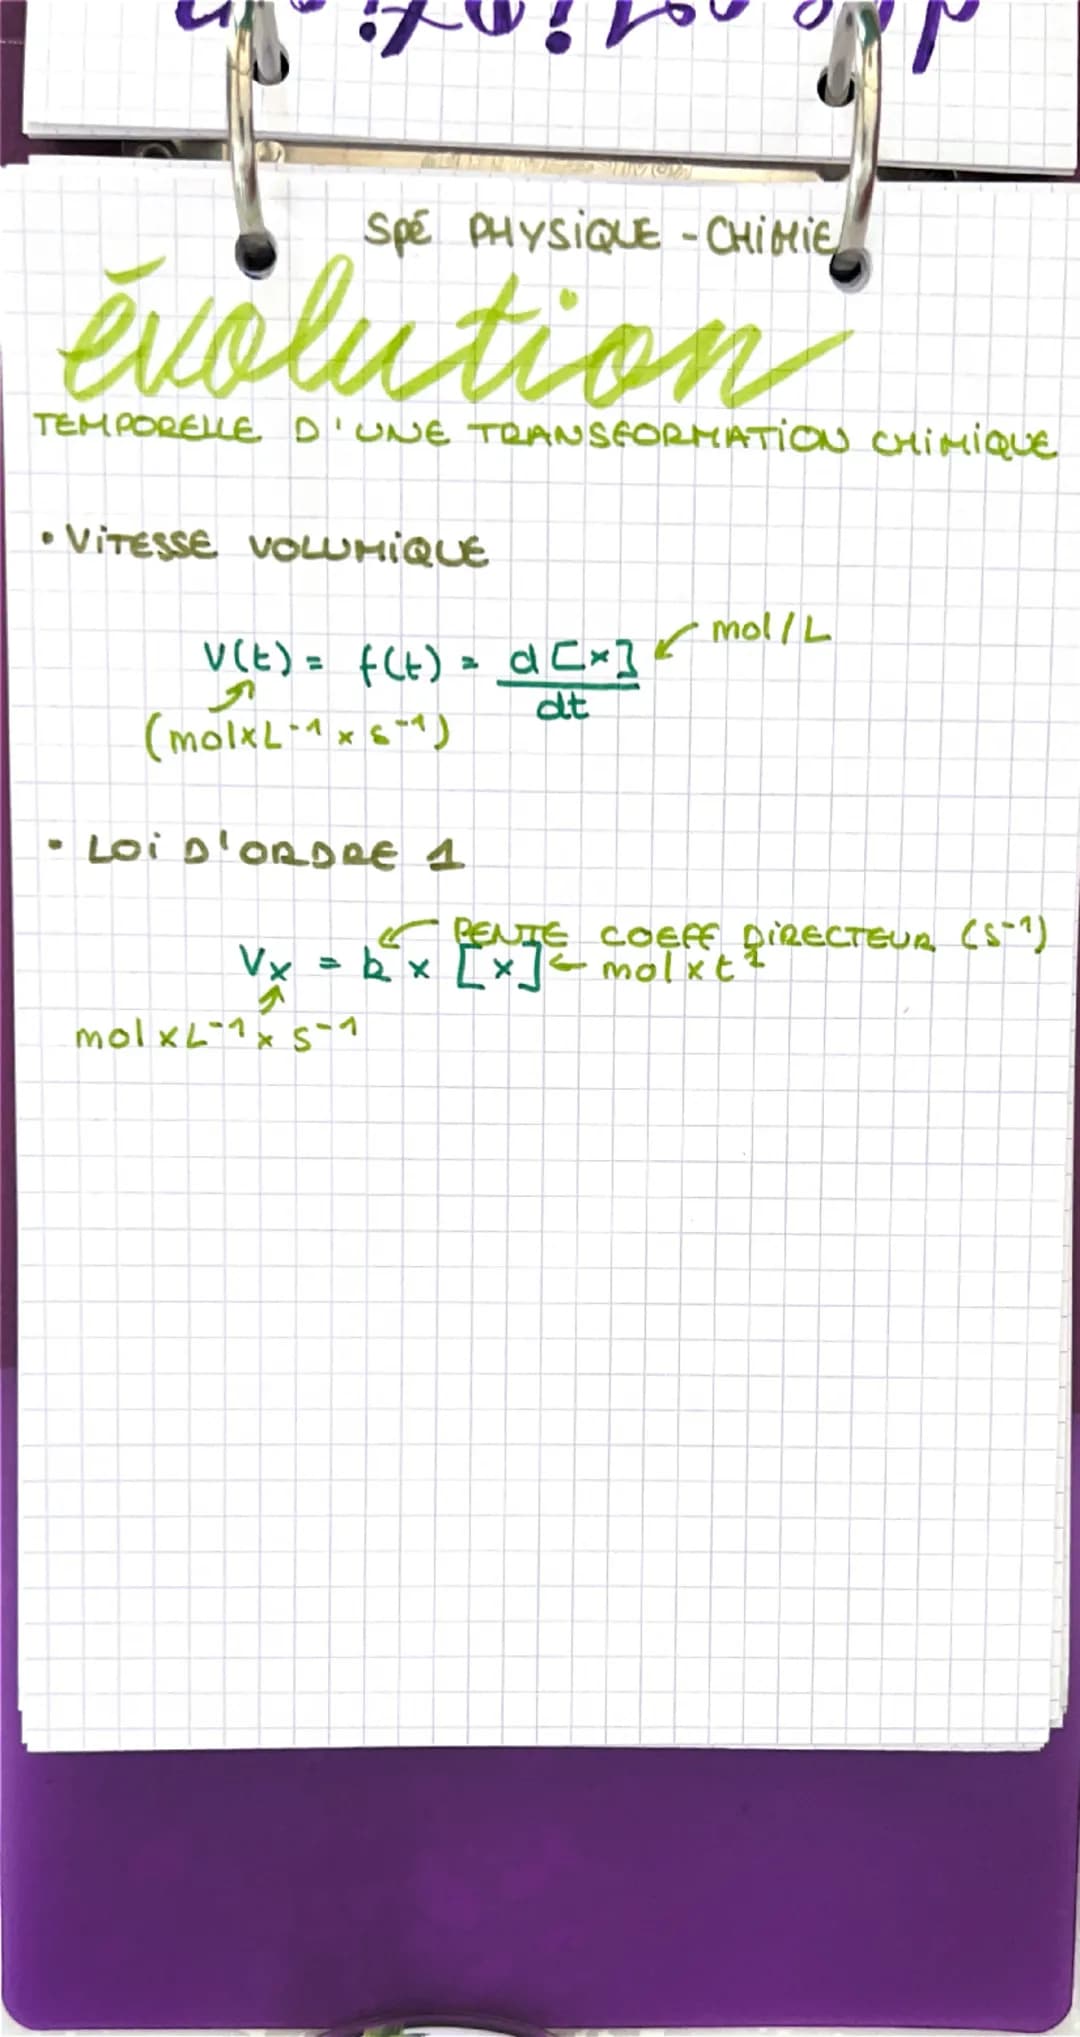 Spé PHYSIQUE - CHIMIE
évolution
TEMPORELLE D'UNE TRANSFORMATION CHIMIQUE
• VITESSE VOLUMIQUE
V(t) = f(t) = d[x]/dt ← mol/L
(mol×L⁻¹ × s⁻¹)
• LOI D'ORDRE 1
PENTE COEFF DIRECTEUR (s⁻¹)
Vx = k × [x] ← mol×t⁻¹
mol×L⁻¹ × s⁻¹